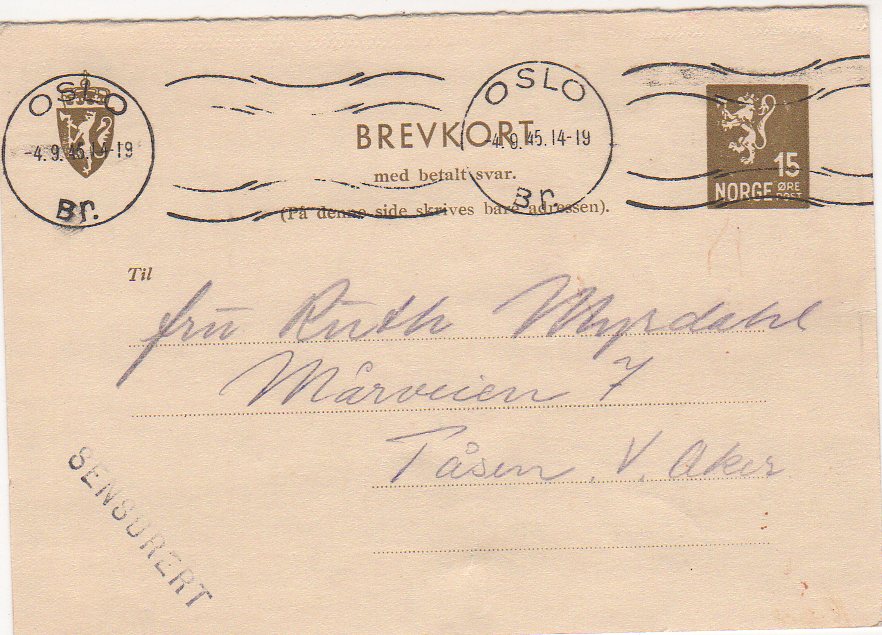 OSLO
-4.9.45.14-19
Br.
OSLO
-4.9.45.14-19
Br.
BREVKORT
med betalt svar.
(På denne side skrives bare adressen).
15
NORGE ØRE
POST
Til
fru Ruth Myrdahl
Mårveien 7
Tåsen, V. Aker
SENSURERT